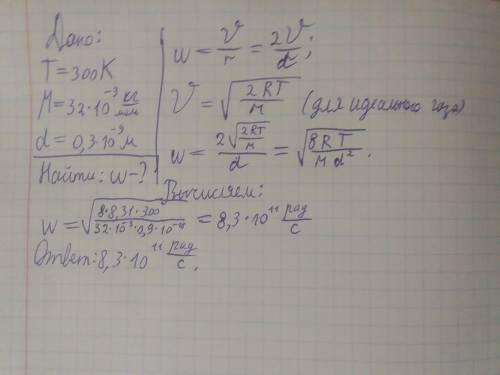 Дано:
T=300K
M=32·10⁻³ кг/моль
d=0,3·10⁻⁹м
Найти: ω-?
ω = V/r = 2V/d;
V = √(2RT/M) (для идеального газа)
ω = 2√(2RT/M)/d = √(8RT/Md²).
Вычисляем:
ω = √(8·8,31·300/32·10⁻³·0,9·10⁻¹⁸) = 8,3·10¹¹ рад/с
Ответ: 8,3·10¹¹ рад/с.